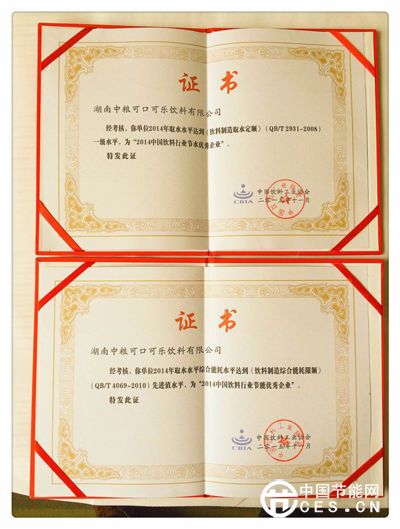 证书
湖南中粮可口可乐饮料有限公司
经考核，你单位2014年取水水平达到《饮料制造取水定额》（QB/T 2931-2008）
一级水平，为“2014中国饮料行业节水优秀企业”。
特发此证
CBIA
中国饮料工业协会
二零一五年十一月
证书
湖南中粮可口可乐饮料有限公司
经考核，你单位2014年取水水平综合能耗水平达到《饮料制造综合能耗限额》
（QB/T 4069-2010）先进值水平，为“2014中国饮料行业节能优秀企业”。
特发此证
CBIA
中国饮料工业协会
二零一五年十一月
中国节能网
CES.CN